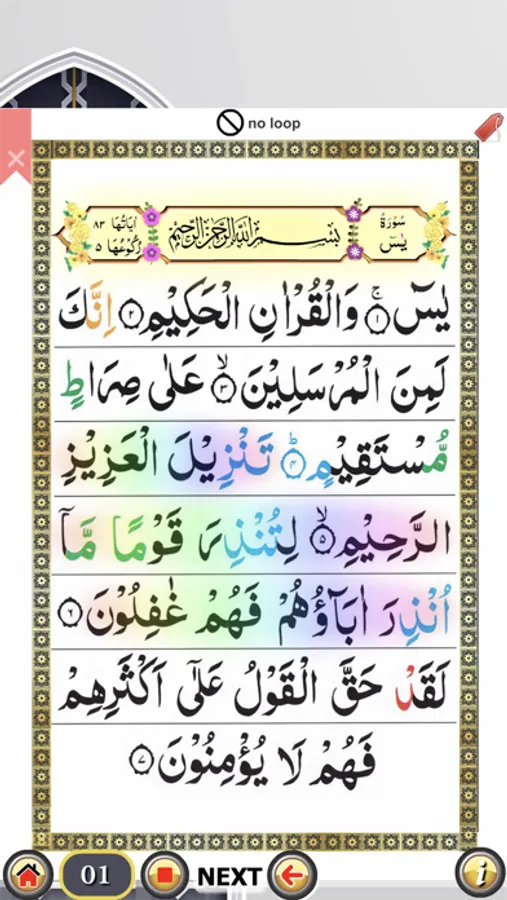 no loop
سُوْرَةُ
يٰسٓ
بِسْمِ اللّٰهِ الرَّحْمٰنِ الرَّحِيْمِ
اٰيَاتُهَا ٨٣
رُكُوْعُهَا ٥
يٰسٓ ۚ ۝١ وَالْقُرْاٰنِ الْحَكِيْمِ ۝٢ اِنَّكَ
لَمِنَ الْمُرْسَلِيْنَ ۙ ۝٣ عَلٰى صِرَاطٍ
مُّسْتَقِيْمٍ ؕ ۝٤ تَنْزِيْلَ الْعَزِيْزِ
الرَّحِيْمِ ۙ ۝٥ لِتُنْذِرَ قَوْمًا مَّاۤ
اُنْذِرَ اٰبَآؤُهُمْ فَهُمْ غٰفِلُوْنَ ۝٦
لَقَدْ حَقَّ الْقَوْلُ عَلٰٓى اَكْثَرِهِمْ
فَهُمْ لَا يُؤْمِنُوْنَ ۝٧
01
NEXT
i